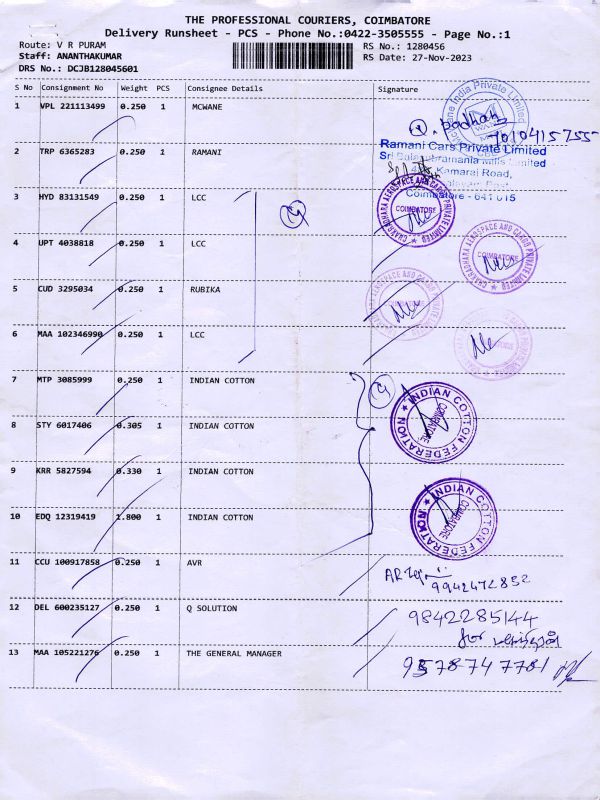 THE PROFESSIONAL COURIERS, COIMBATORE
Delivery Runsheet - PCS - Phone No.:0422-3505555 - Page No.:1
Route: V R PURAM
RS No.: 1280456
Staff: ANANTHAKUMAR
RS Date: 27-Nov-2023
DRS No.: DCJB128045601
S No Consignment No Weight PCS Consignee Details Signature
1 VPL 221113499 0.250 1 MCWANE
7010415755
2 TRP 6365283 0.250 1 RAMANI
Ramani Cars Private Limited
Kamaraj Road,
Coimbatore - 641 015
3 HYD 83131549 0.250 1 LCC
CHAKRADHARA AEROSPACE AND CARGO PRIVATE LIMITED
COIMBATORE
4 UPT 4038818 0.250 1 LCC
CHAKRADHARA AEROSPACE AND CARGO PRIVATE LIMITED
COIMBATORE
5 CUD 3295034 0.250 1 RUBIKA
6 MAA 102346990 0.250 1 LCC
7 MTP 3085999 0.250 1 INDIAN COTTON
INDIAN COTTON FEDERATION
COIMBATORE
8 STY 6017406 0.305 1 INDIAN COTTON
9 KRR 5827594 0.330 1 INDIAN COTTON
INDIAN COTTON FEDERATION
COIMBATORE
10 EDQ 12319419 1.800 1 INDIAN COTTON
11 CCU 100917858 0.250 1 AVR
9942472852
12 DEL 600235127 0.250 1 Q SOLUTION
9842285144
for
13 MAA 105221276 0.250 1 THE GENERAL MANAGER